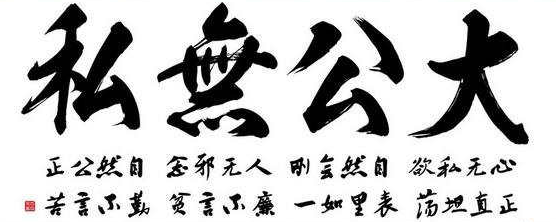 大公無私
心无私欲 自然会刚 人无邪念 自然公正
正直坦荡 表里如一 廉不言贫 勤不言苦